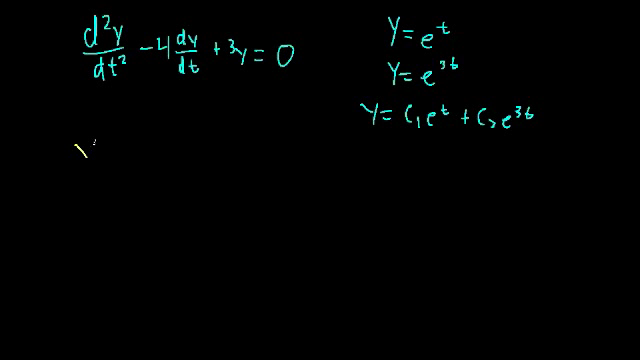 d²y/dt² − 4 dy/dt + 3y = 0
y = e^t
y = e^{3t}
y = c₁e^t + c₂e^{3t}